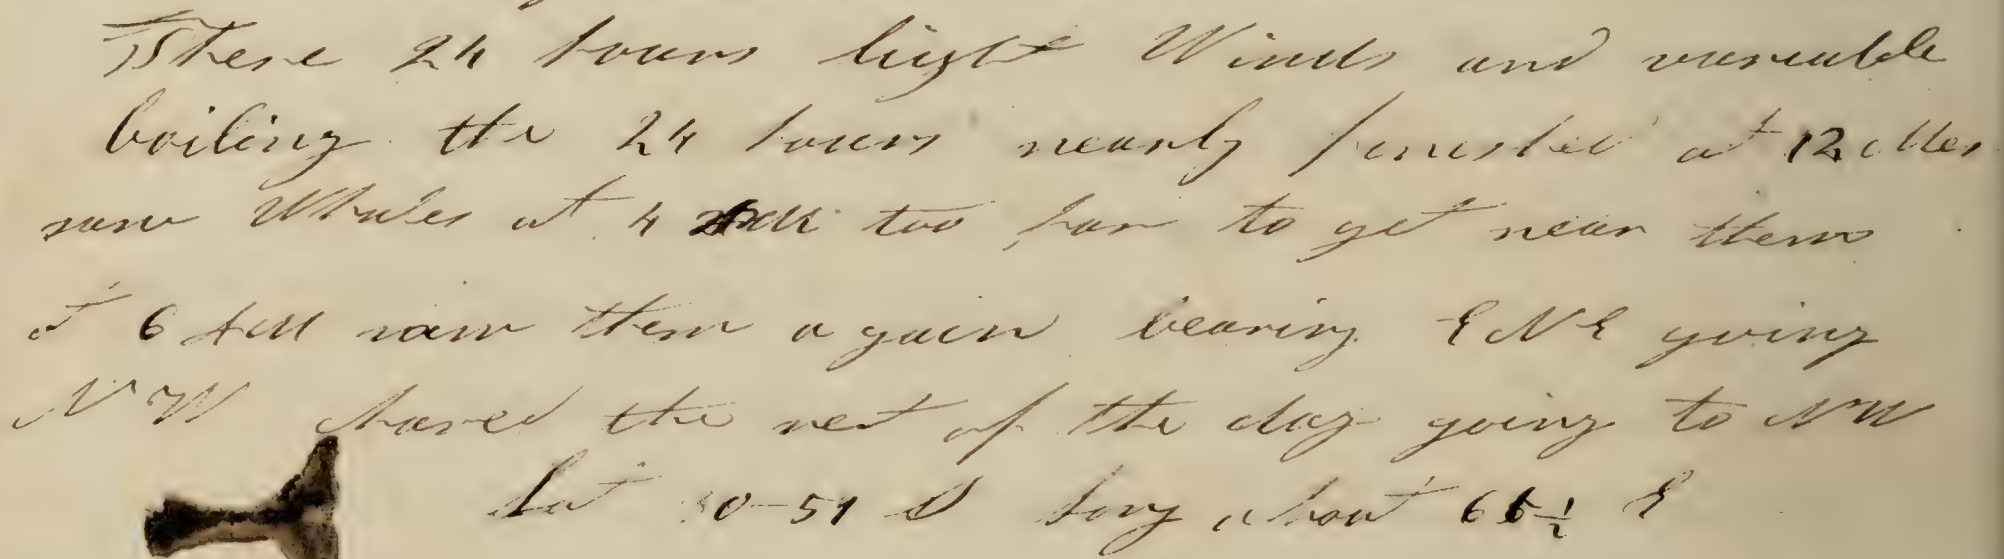 These 24 hours light Winds and variable
boiling the 24 hours nearly finished at 12 Mer
saw Whales at 4 too far to get near them
at 6 AM saw them again bearing ENE going
NW chased the rest of the day going to NW
Lat S Long about E